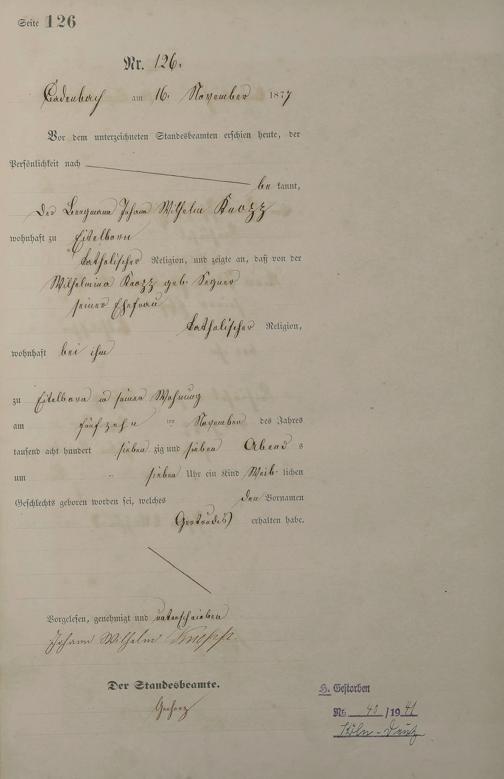 Seite 126
Nr. 126.
Cadenbach am 16. November 1877
Vor dem unterzeichneten Standesbeamten erschien heute, der
Persönlichkeit nach
be kannt,
Der Bergmann Johann Wilhelm
wohnhaft zu Eitelborn
katholischer Religion, und zeigte an, daß von der
Wilhelmina geb.
seiner Ehefrau
katholischer Religion,
wohnhaft bei ihm
zu Eitelborn in seiner Wohnung
am fünfzehn ten November des Jahres
tausend acht hundert sieben zig und sieben Abend s
um sieben Uhr ein Kind Weib lichen
Geschlechts geboren worden sei, welches den Vornamen
Gertrudis erhalten habe.
Vorgelesen, genehmigt und unterschrieben
Johann Wilhelm
Der Standesbeamte.
H. Gestorben
No 40 /19 41
Köln-Deutz